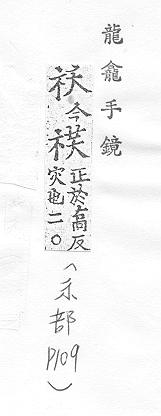 龍龕手鏡
今正於高反灾也二〇
（示部P109）